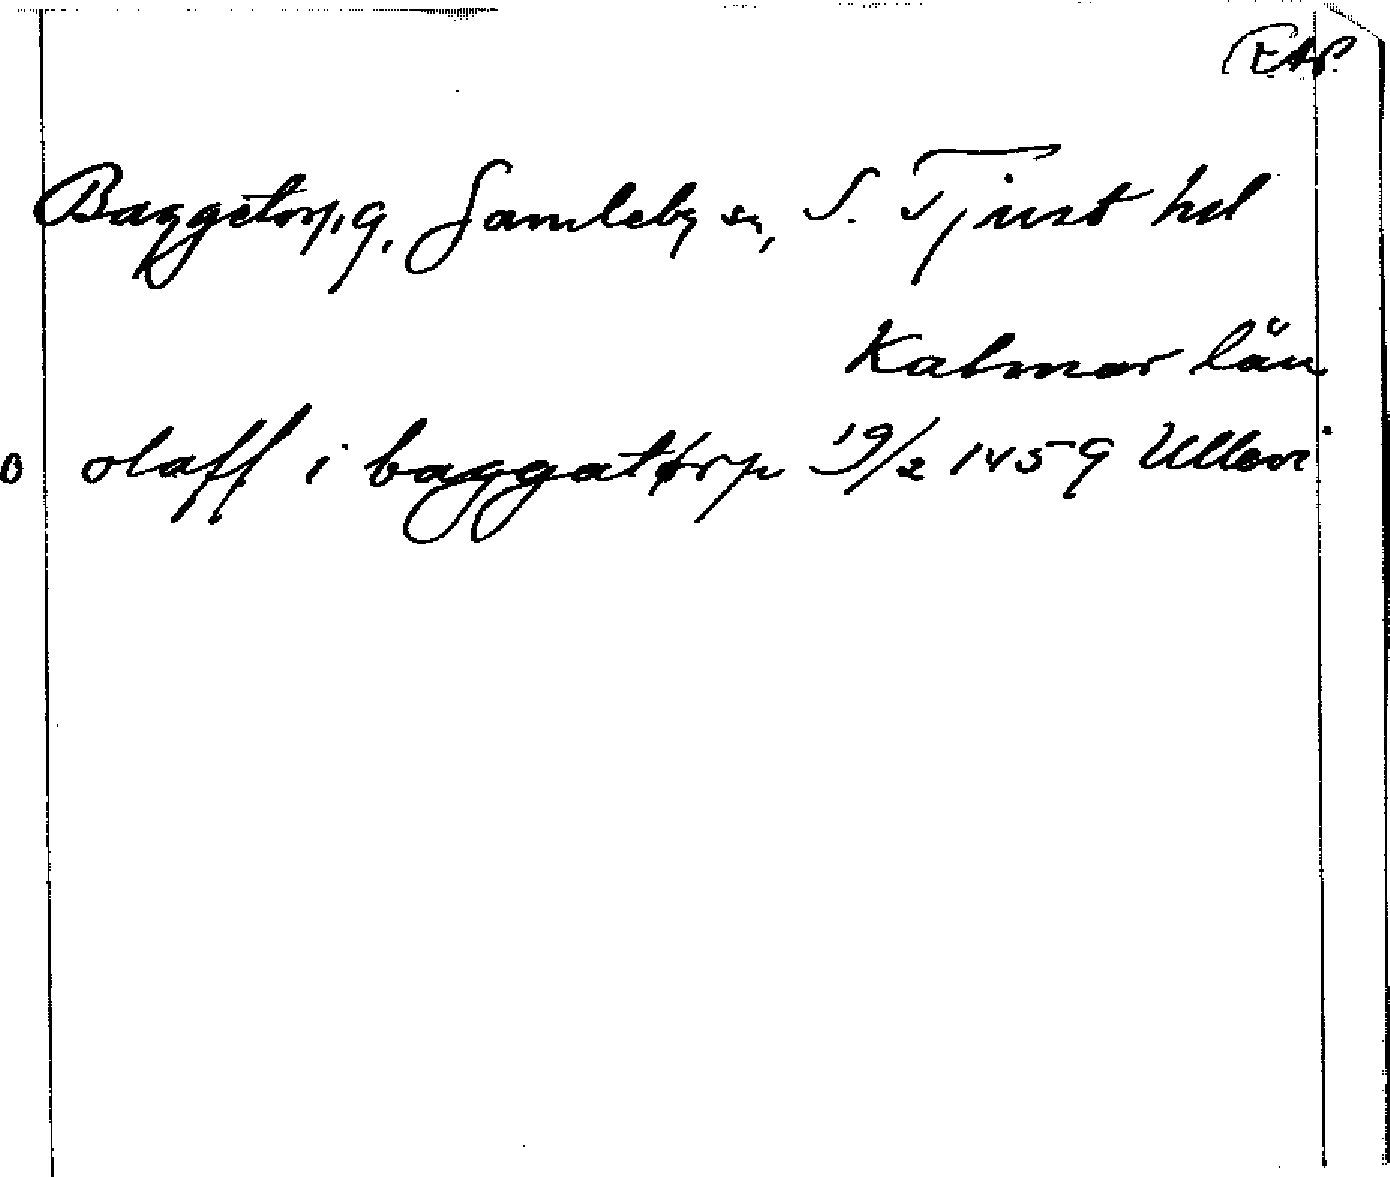 EAP.
Baggetorp, g, Gamleby sn, S. Tjust hd
Kalmar län
o olaff i baggatørp 19/2 1459 Ullevi